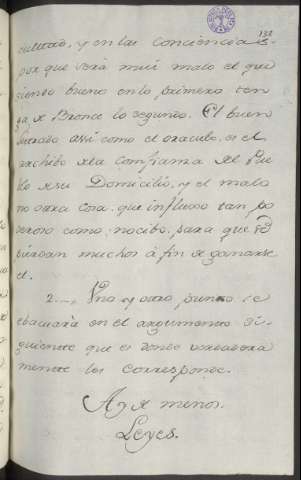 132
cultad, y en las Conciencias
por que será mui malo el que
siendo bueno en lo primero ten
ga de Bronce lo segundo. El buen
Letrado assi como el oraculo, es el
archibo de la Confianza del Pue
blo de su Domicilio, y el malo
no otra cosa, que influxo tan po
deroso como nocibo, para que se
pierdan muchos á fin de ganarse
el.
2..., Uno y otro punto se
ebacuará en el argumento si-
guiente que es donde verdadera
mente les corresponde.
Ay de menos.
Leyes.